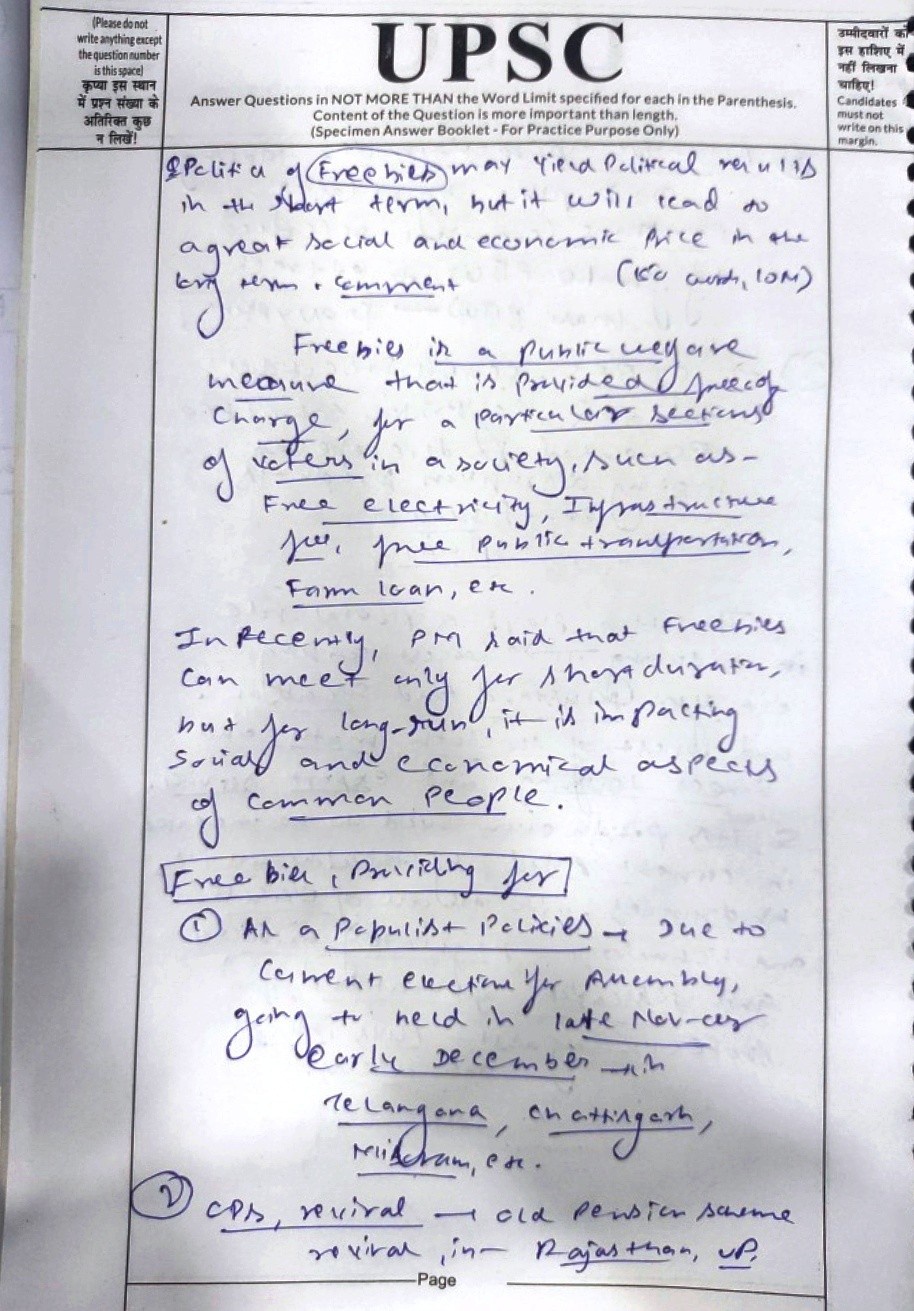 (Please do not
write anything except
the question number
is this space)
कृप्या इस स्थान
में प्रश्न संख्या के
अतिरिक्त कुछ
न लिखें!
UPSC
Answer Questions in NOT MORE THAN the Word Limit specified for each in the Parenthesis.
Content of the Question is more important than length.
(Specimen Answer Booklet - For Practice Purpose Only)
उम्मीदवारों को
इस हाशिए में
नहीं लिखना
चाहिए!
Candidates
must not
write on this
margin.
of Freebies may yield Political results
in the short term, but it will lead to
a great social and economic price in the
long term. comment (150 words, 10M)
Freebies is a public welfare
measure that is provided free of
charge, for a particular sections
of voters in a society, such as-
Free electricity, Infrastructure
free public transportation,
Farm loan, etc.
In Recently, PM said that Freebies
can meet only for short duration,
but for long-run, it is impacting
social and economical aspects
of common people.
Freebies, Providing for
① As a Populist Policies → Due to
current election for Assembly,
going to held in late Nov- or
early December → in
Telangana, Chattisgarh,
Mizoram, etc.
② OPS, revival → old pension scheme
revival, in- Rajasthan, UP.
Page